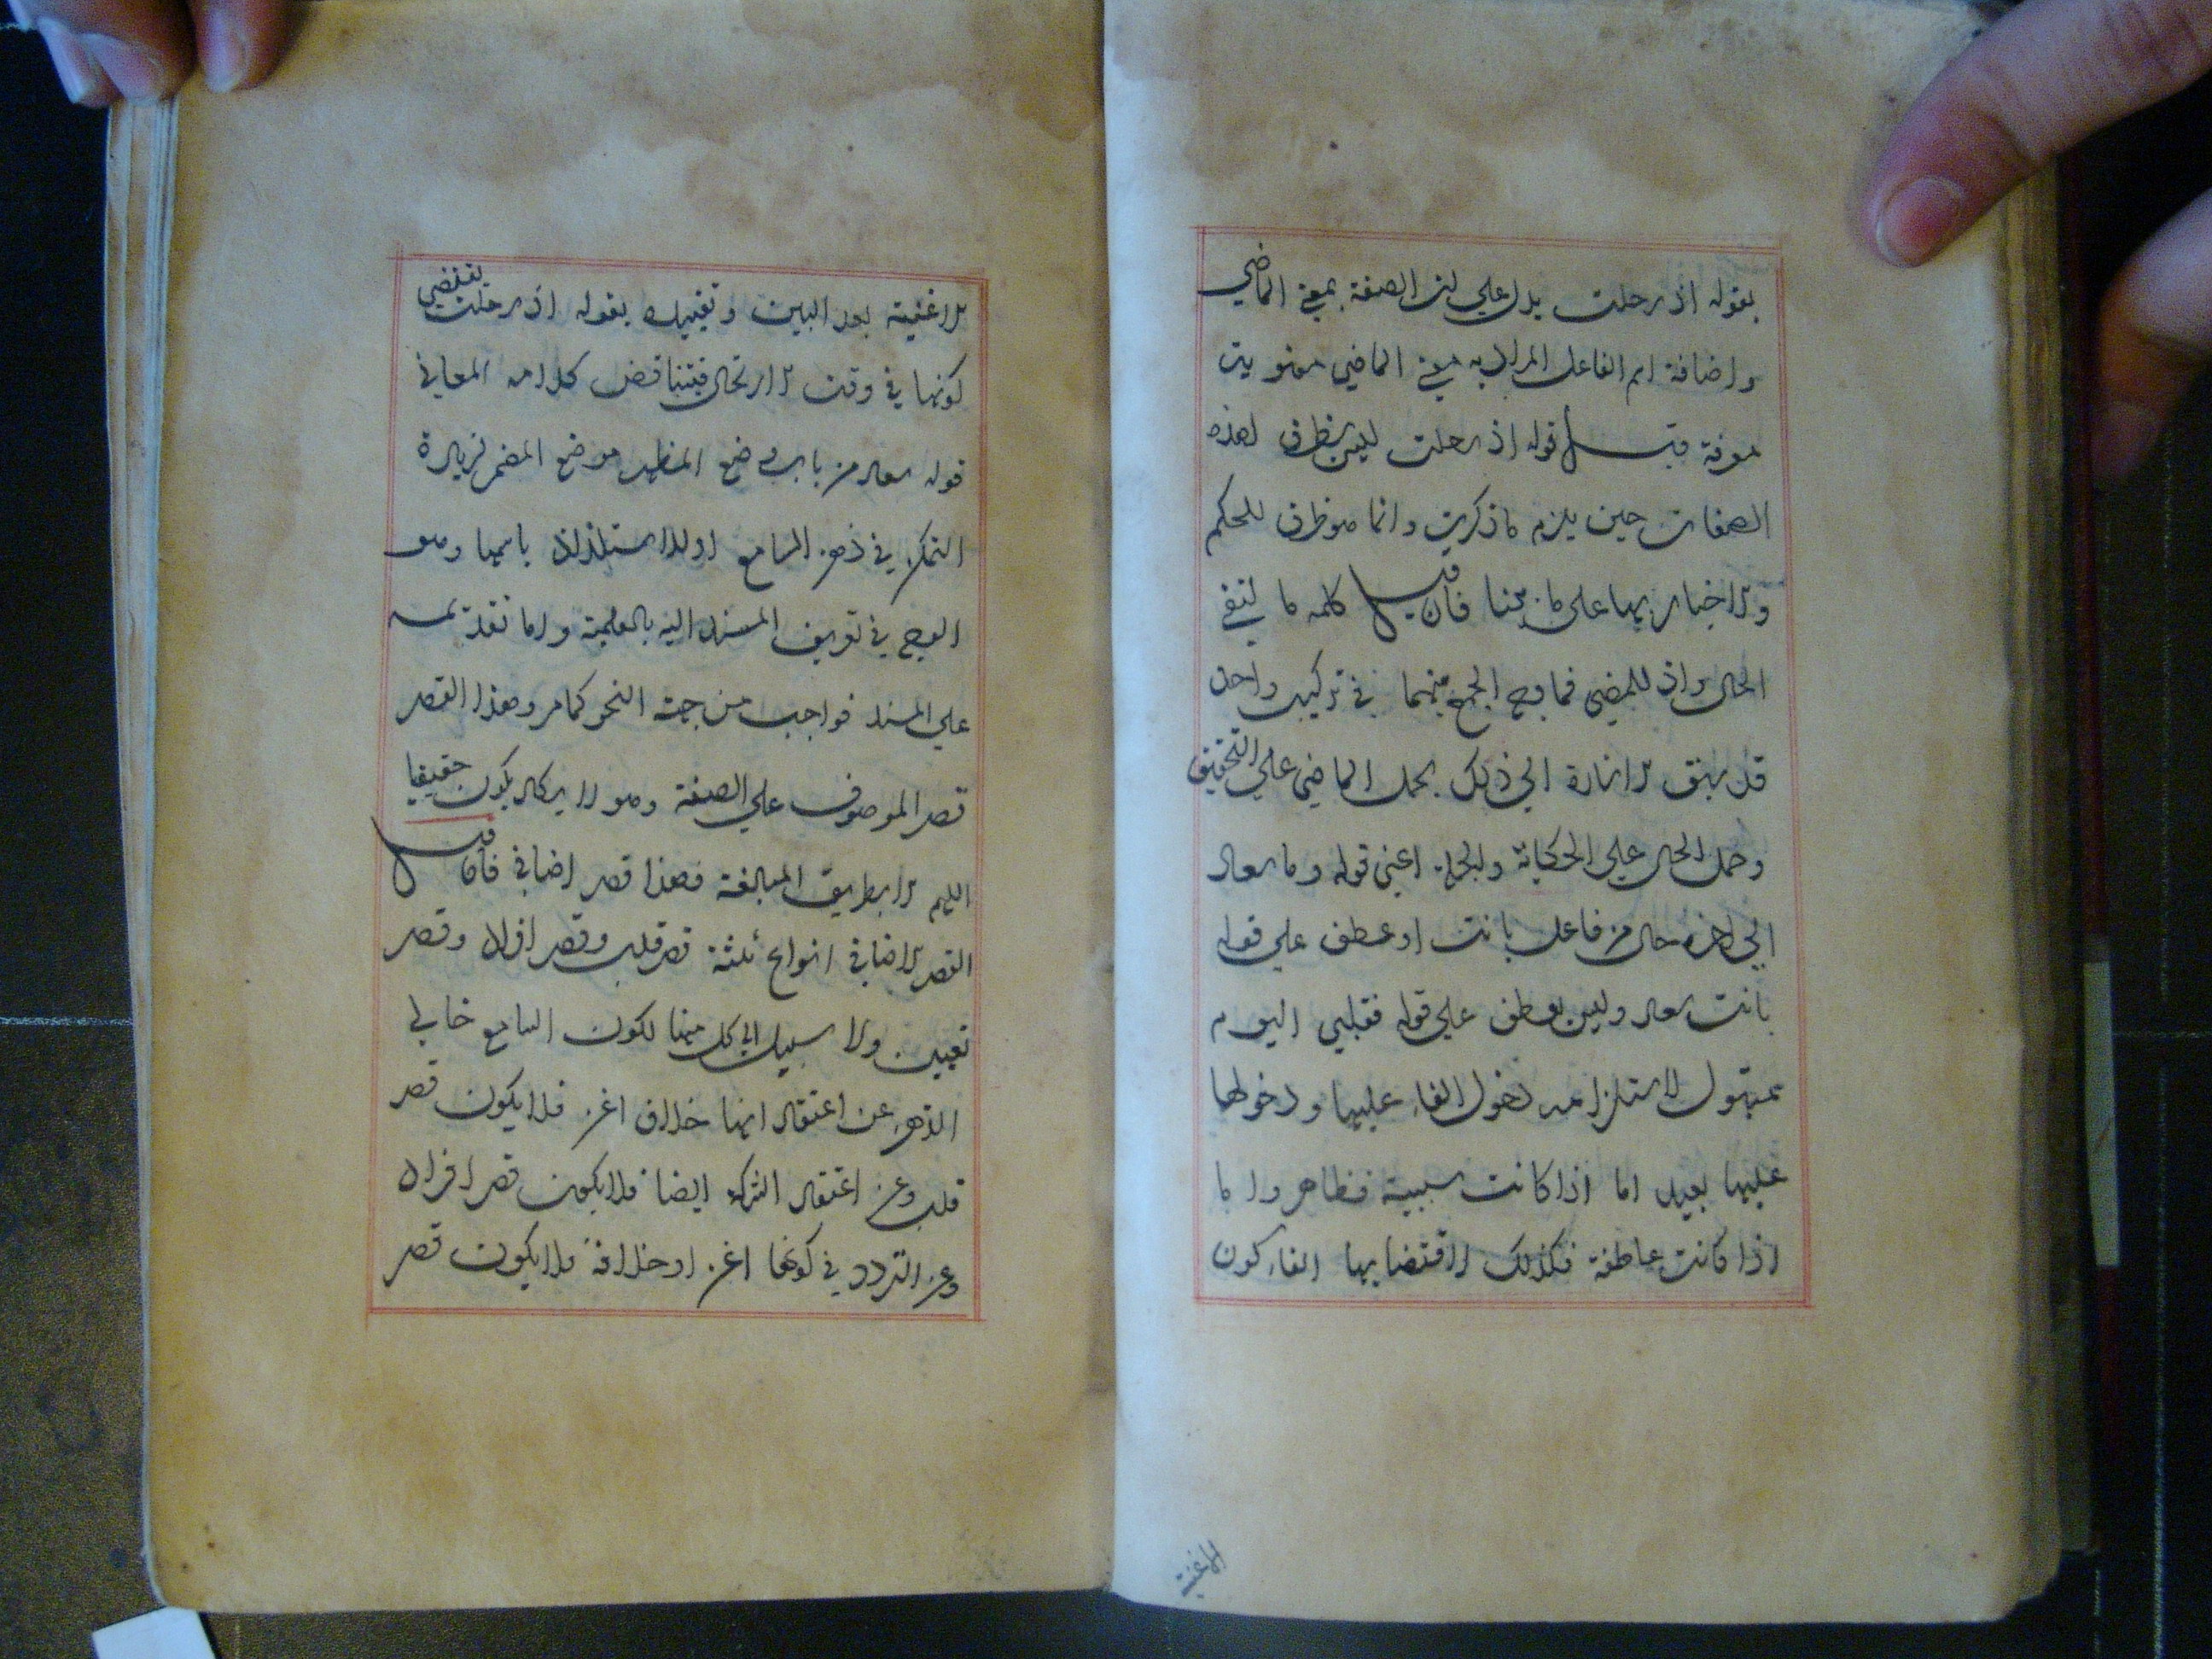 بقوله اذ رحلت يدل علي ان الصفة بمعني الماضي
واضافة اسم الفاعل المراد به معني الماضي معنوية
معرفة قيل قوله اذ رحلت ليس بظرف لهذه
الصفات حين يلزم ما ذكرت وانما هو ظرف للحكم
والاخبار بها على ما زعمنا فان قيل كلمه ما لنفي
الحال واذ للمضي فما وجه الجمع بينهما في تركيب واحد
قد سبق الاشارة الي ذلك بحمل الماضي علي التحقيق
وحمل الحال علي الحكاية والجملة اعني قوله وما سعاد
الي اخره حال من فاعل بانت او عطف علي قوله
بانت سعاد وليس بعطف علي قوله فقلبي اليوم
متبول لاستلزامه دخول الفاء عليها ودخولها
عليها بعيد اما اذا كانت سببية فظاهر واما
اذا كانت عاطفة فكذلك لاقتضايها الفاء كون
الاغنية
الاغنية بعد البين وتقييده بقوله اذ رحلت يقتضي
كونها في وقت الارتحال فيتناقض كلامه المعاني
قوله سعاد من باب وضع المظهر موضع المضمر لزيادة
التمكن في ذهن السامع او للاستلذاذ باسمها وهو
الوجه في تعريف المسند اليه بالعلمية واما تقديمه
علي المسند فواجب من جهة النحو كما مر وهذا القصر
قصر الموصوف علي الصفة وهو لا يكاد يكون حقيقيا
اللهم الا بطريق المبالغة فهذا قصر اضافي فان قيل
القصر الاضافي انواع ثلثة قصر قلب وقصر افراد وقصر
تعيين ولا سبيل الي كل منها لكون السامع خالي
الذهن عن اعتقاد انها خلاف اغن فلا يكون قصر
قلب وعن اعتقاد الشركة ايضا فلا يكون قصر افراد
وعن التردد في كونها اغن او خلافه فلا يكون قصر